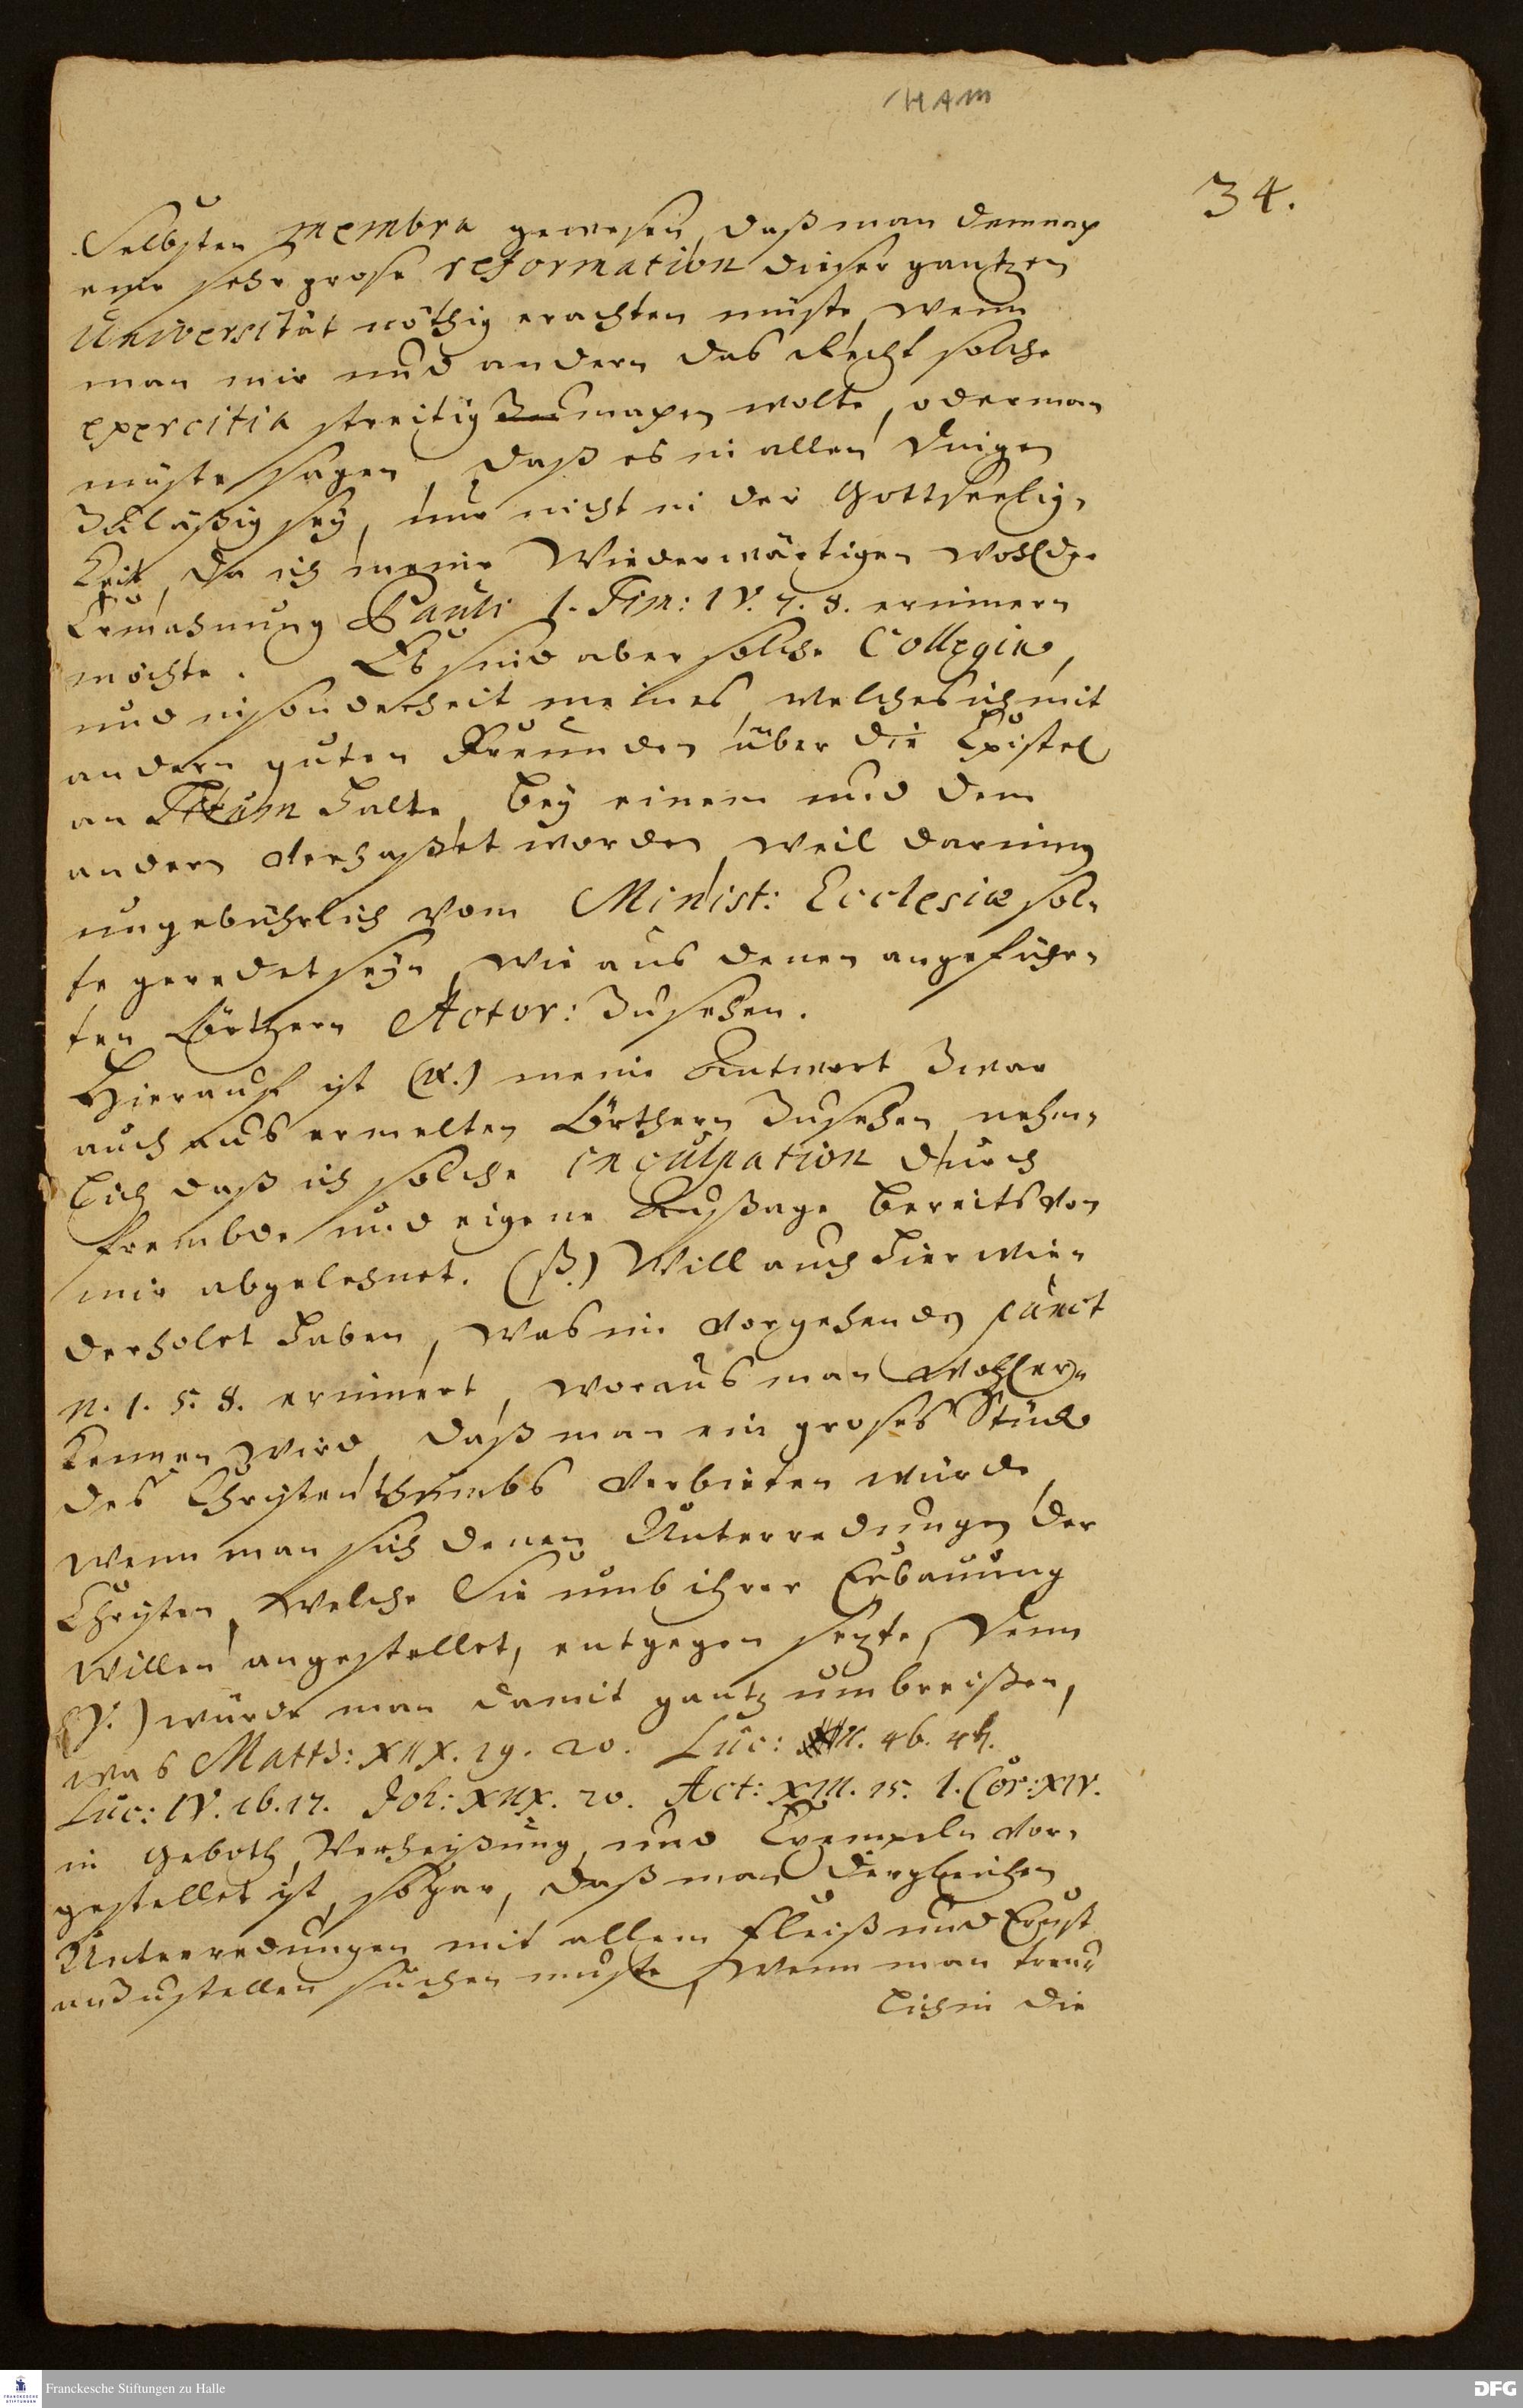 HAM
34.
Selbsten membra gewesen, daß man demnach
eine sehr grose reformation dieser gantzen
Universität nöthig erachten müste, wenn
man mir und andern das Recht solche
exercitia streitig machen wolte, oder man
müste sagen, daß es in allen Dingen
zuläßig sey, nur nicht in der Gottseelig-
keit, da ich meine Wiederwärtigen wohl der
Ermahnung Pauli 1. Tim: IV. 7. 8. erinnern
möchte. Es sind aber solche Collegia,
und insonderheit meines, welches ich mit
andern guten Freunden über die Epistel
an Titum halte, bey einem und dem
andern verhaßet worden, weil darinnen
ungebührlich vom Minist: Ecclesiæ sol-
te geredet seyn, wie aus denen angeführ-
ten Örthern Actor: zusehen.
Hierauf ist (α.) meine Antwort zwar
auch aus ermelten Örthern zusehen, nehm-
lich daß ich solche inculpation durch
frembde und eigene Außage bereits von
mir abgelehnet. (β.) Will auch hier wie-
derholet haben, was im vorgehenden punct
n. 1. 5. 8. erinnert, woraus man wohl er-
kennen wird, daß man ein groses Stück
des Christenthumbs verbieten würde,
wenn man sich denen Unterredungen der
Christen, welche Sie umb ihrer Erbauung
willen angestellet, entgegen setzte, Denn
(γ.) würde man damit gantz umbreißen,
was Matth: XIIX. 19. 20. Luc: II. 46. 47.
Luc: IV. 16. 17. Joh: XIIX. 20. Act: XIII. 15. 1. Cor: XIV.
in Geboth, Verheißung, und Exempeln vor-
gestellet ist, sogar, daß man dergleichen
Unterredungen mit allem Fleiß und Ernst
anzustellen suchen muste, wenn man treu-
lich in die
Franckesche Stiftungen zu Halle
FRANCKESCHE STIFTUNGEN
DFG